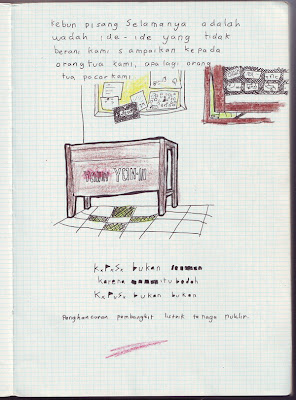 Kebun pisang Selamanya adalah
wadah ide-ide yang tidak
berani kami sampaikan kepada
orang tua kami, apalagi orang
tua pacar kami
YOIN-IN
KxPxSx bukan
karena itu bodoh
KxPxSx bukan bukan
Penghancuran pembangkit listrik tenaga nuklir.